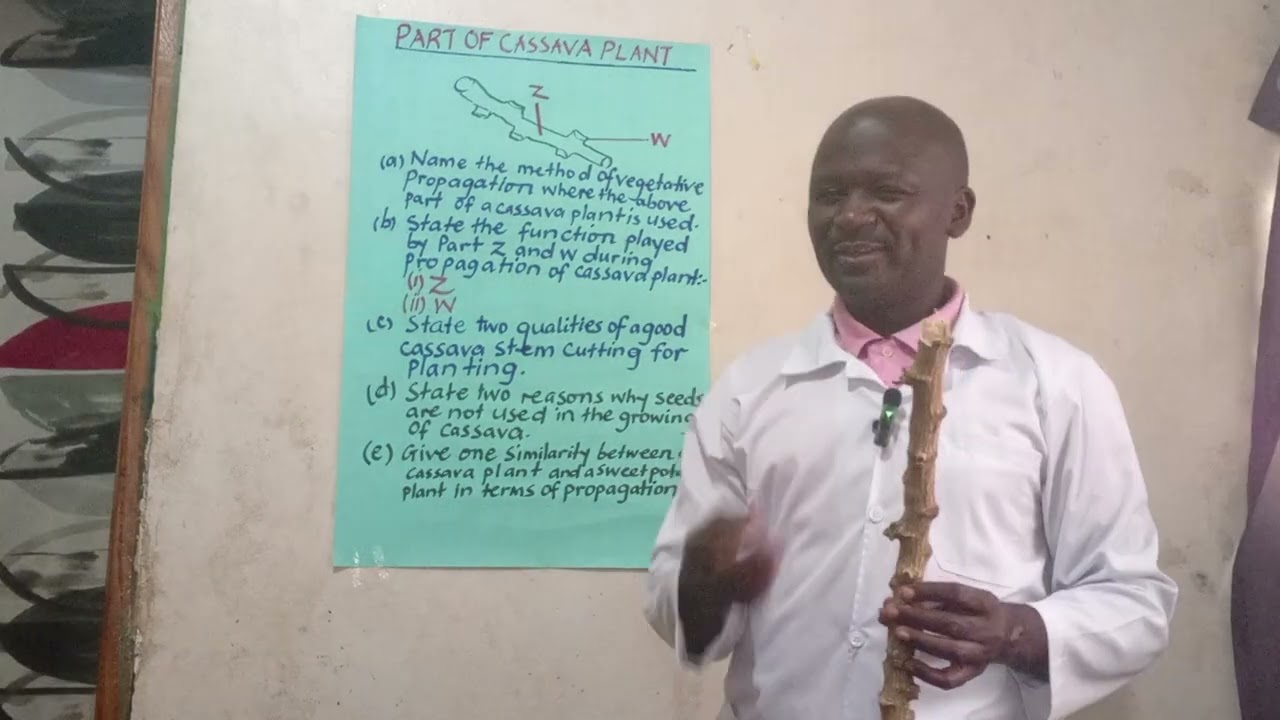 PART OF CASSAVA PLANT
Z
W
(a) Name the method of vegetative
propagation where the above
part of a cassava plant is used.
(b) State the function played
by Part Z and W during
propagation of cassava plant:-
(i) Z
(ii) W
(c) State two qualities of a good
cassava stem cutting for
planting.
(d) State two reasons why seeds
are not used in the growing
of cassava.
(e) Give one similarity between
cassava plant and a sweet
plant in terms of propagation